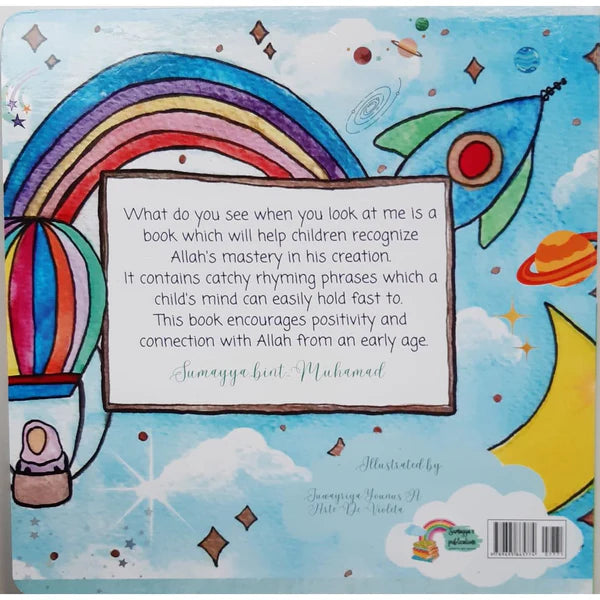 What do you see when you look at me is a
book which will help children recognize
Allah's mastery in his creation.
It contains catchy rhyming phrases which a
child's mind can easily hold fast to.
This book encourages positivity and
connection with Allah from an early age.
Sumayya bint Muhamad
Illustrated by
Juwayriya Younus A
Arte De Violeta
Sumayya's
publications